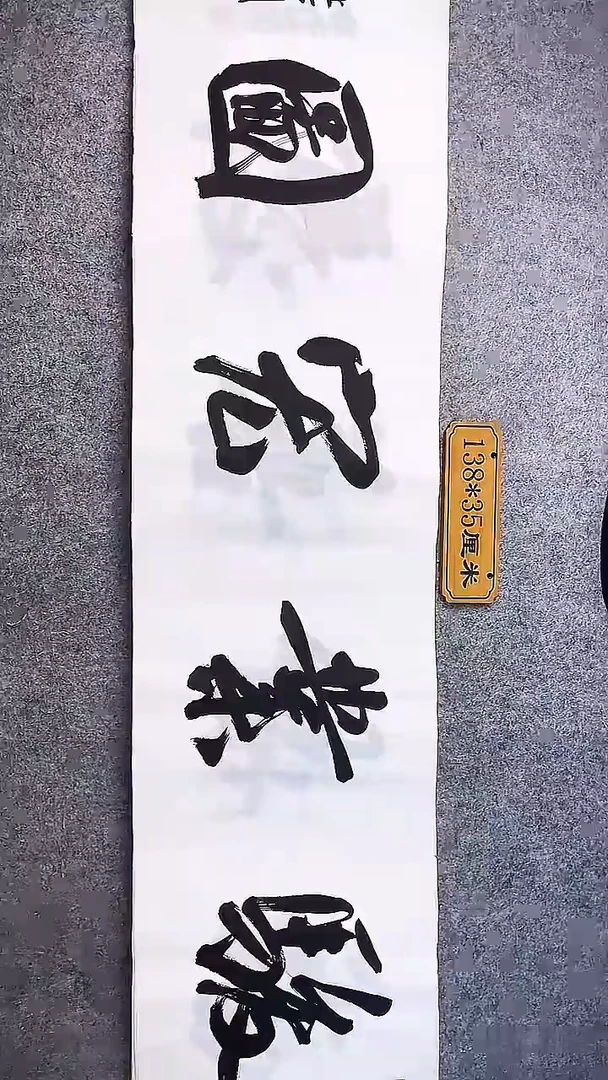 駿業宏圖
138*35厘米